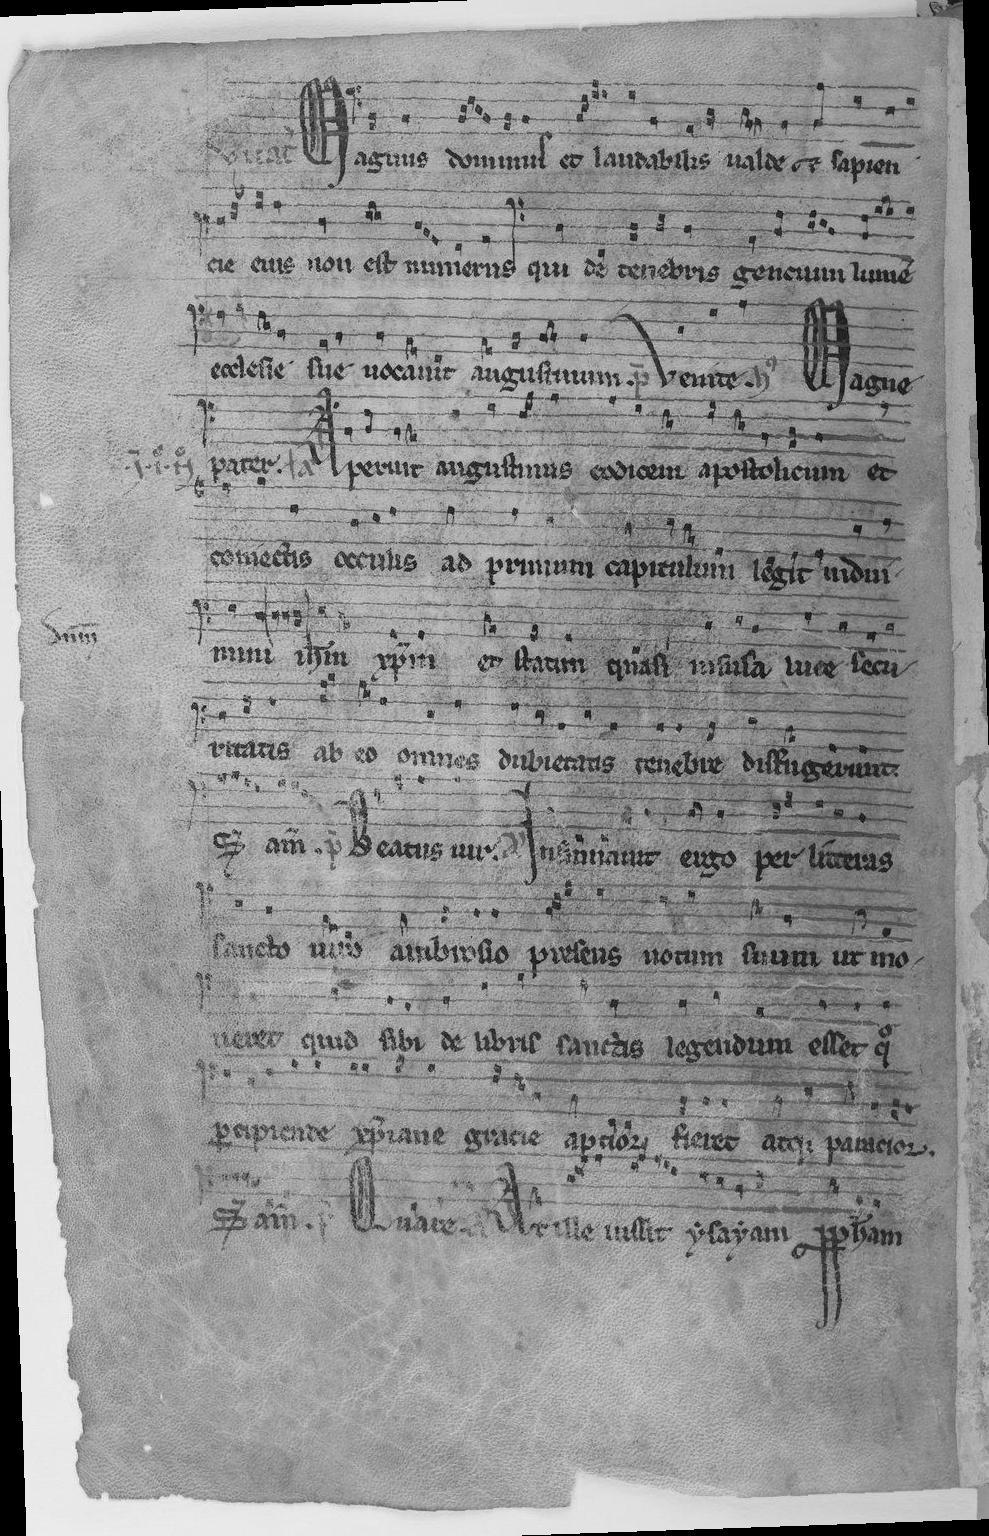 Inuitat̄ Magnus dominus et laudabilis ualde et sapien
cie eius non est numerus qui de tenebris gencium lumē
ecclesie sue uocauit augustinum. p̄. Venite. hꝰ Magne
pater. Aperuit augustinus codicem apostolicum et
coniectis occulis ad primum capitulum legit indui
mini ihm xp̄m et statim quasi infusa luce secu
ritatis ab eo omnes dubietatis tenebre diffugerunt.
S. am̄. p̄. Beatus uir. Insinuauit ergo per litteras
sancto uiro ambrosio presens uotum suum ut mo
neret quid sibi de libris sanctis legendum esset qͦ
percipiende xp̄iane gracie apcior fieret atqꝫ paracior.
S. am̄. p̄. Quare. At ille iussit ysayam pph̄am